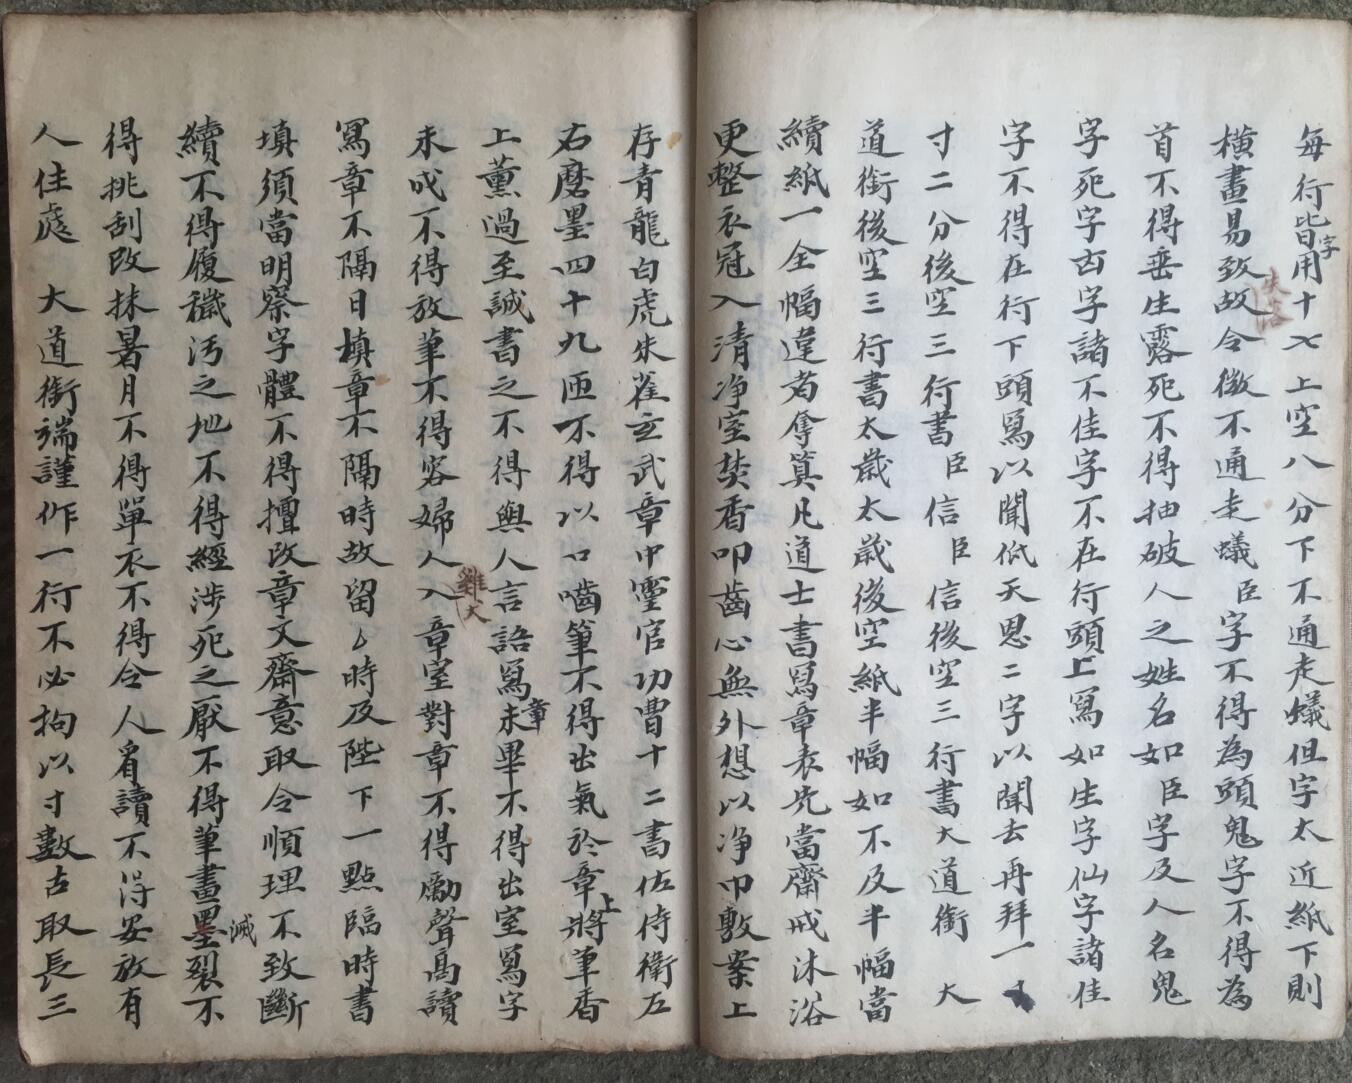 每行皆用十七字上空八分下不通走蟻但字太近紙下則
橫畫易致失落故令微不通走蟻臣字不得為頭鬼字不得為
首不得垂生露死不得抽破人之姓名如臣字及人名鬼
字死字凶字諸不佳字不在行頭上寫如生字仙字諸佳
字不得在行下頭寫以聞伏天恩二字以聞去再拜一寸
寸二分後空三行書臣信臣信後空三行書大道銜 大
道銜後空三行書太歲太歲後空紙半幅如不及半幅當
續紙一全幅違者奪筭凡道士書寫章表先當齋戒沐浴
更整衣冠入清淨室焚香叩齒心無外想以淨巾敷案上
存青龍白虎朱雀玄武章中靈官功曹十二書佐侍衛左
右磨墨四十九匝不得以口嚙筆不得出氣於章上將筆香
上薰過至誠書之不得與人言語寫章未畢不得出室寫字
未成不得放筆不得容婦人雞犬入章室對章不得勵聲高讀
寫章不隔日填章不隔時故留時及陛下一點臨時書
填須當明察字體不得擅改章文齋意取令順理不致斷
續不得履穢污之地不得經涉死之厭不得筆畫墨裂不滅
得挑刮改抹暑月不得單衣不得令人看讀不得安放有
人住處 大道銜端謹作一行不必拘以寸數古取長三